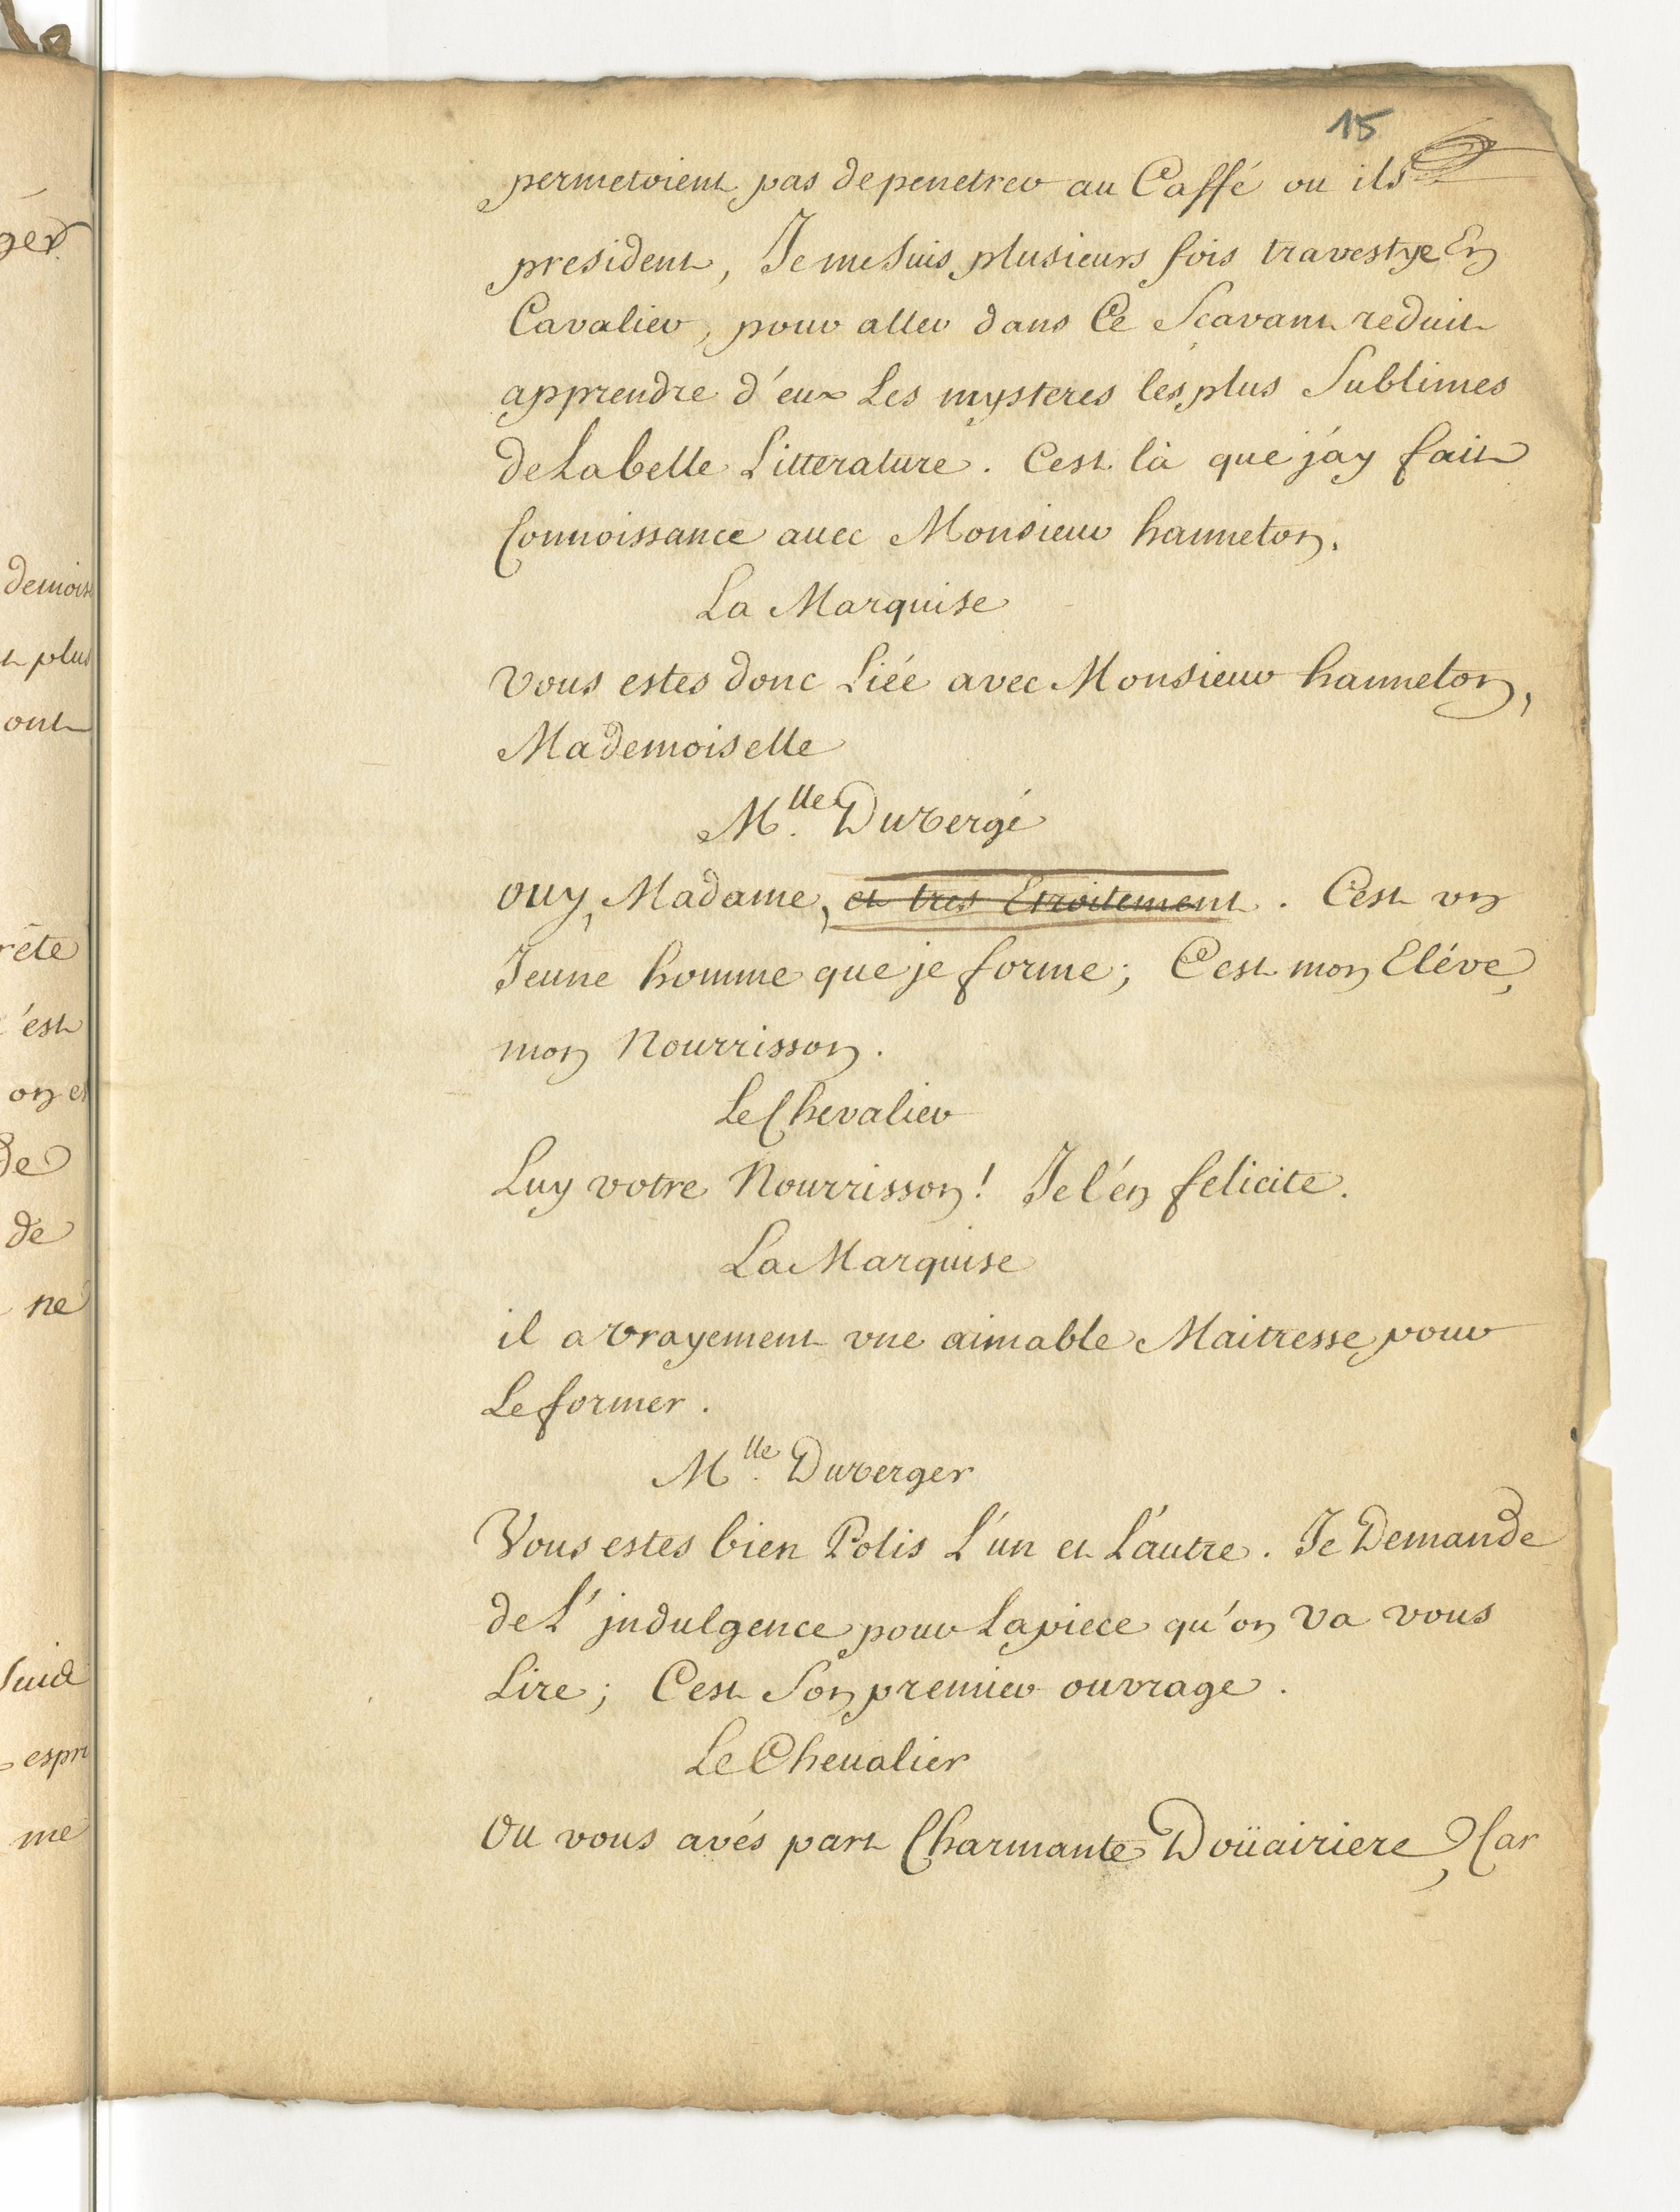 15
permetoient pas de penetrer au Caffé ou ils
president, Je me suis plusieurs fois travestye En
Cavalier, pour aller dans Ce Scavant reduit
apprendre d'eux Les mysteres les plus Sublimes
de La belle Litterature. C'est là que j'ay fait
Connoissance auec Monsieur hanneton.
La Marquise
Vous estes donc Liée avec Monsieur hanneton,
Mademoiselle
Mlle. Duvergé
ouy, Madame, et tres Etroitement. C'est vn
Jeune homme que je forme; C'est mon Eléve,
mon Nourrisson.
Le Chevalier
Luy votre Nourrisson! Je l'en felicite.
La Marquise
il a vrayement vne aimable Maitresse pour
Le former.
Mlle. Duverger
Vous estes bien Polis L'un et L'autre. Je Demande
de L'jndulgence pour La piece qu'on va vous
Lire; C'est Son premier ouvrage.
Le Cheualier
Ou vous avés part Charmante Doüairiere, Car
ger
demois
plus
ont
rête
'est
on et
de
de
ne
Suid
espri
me